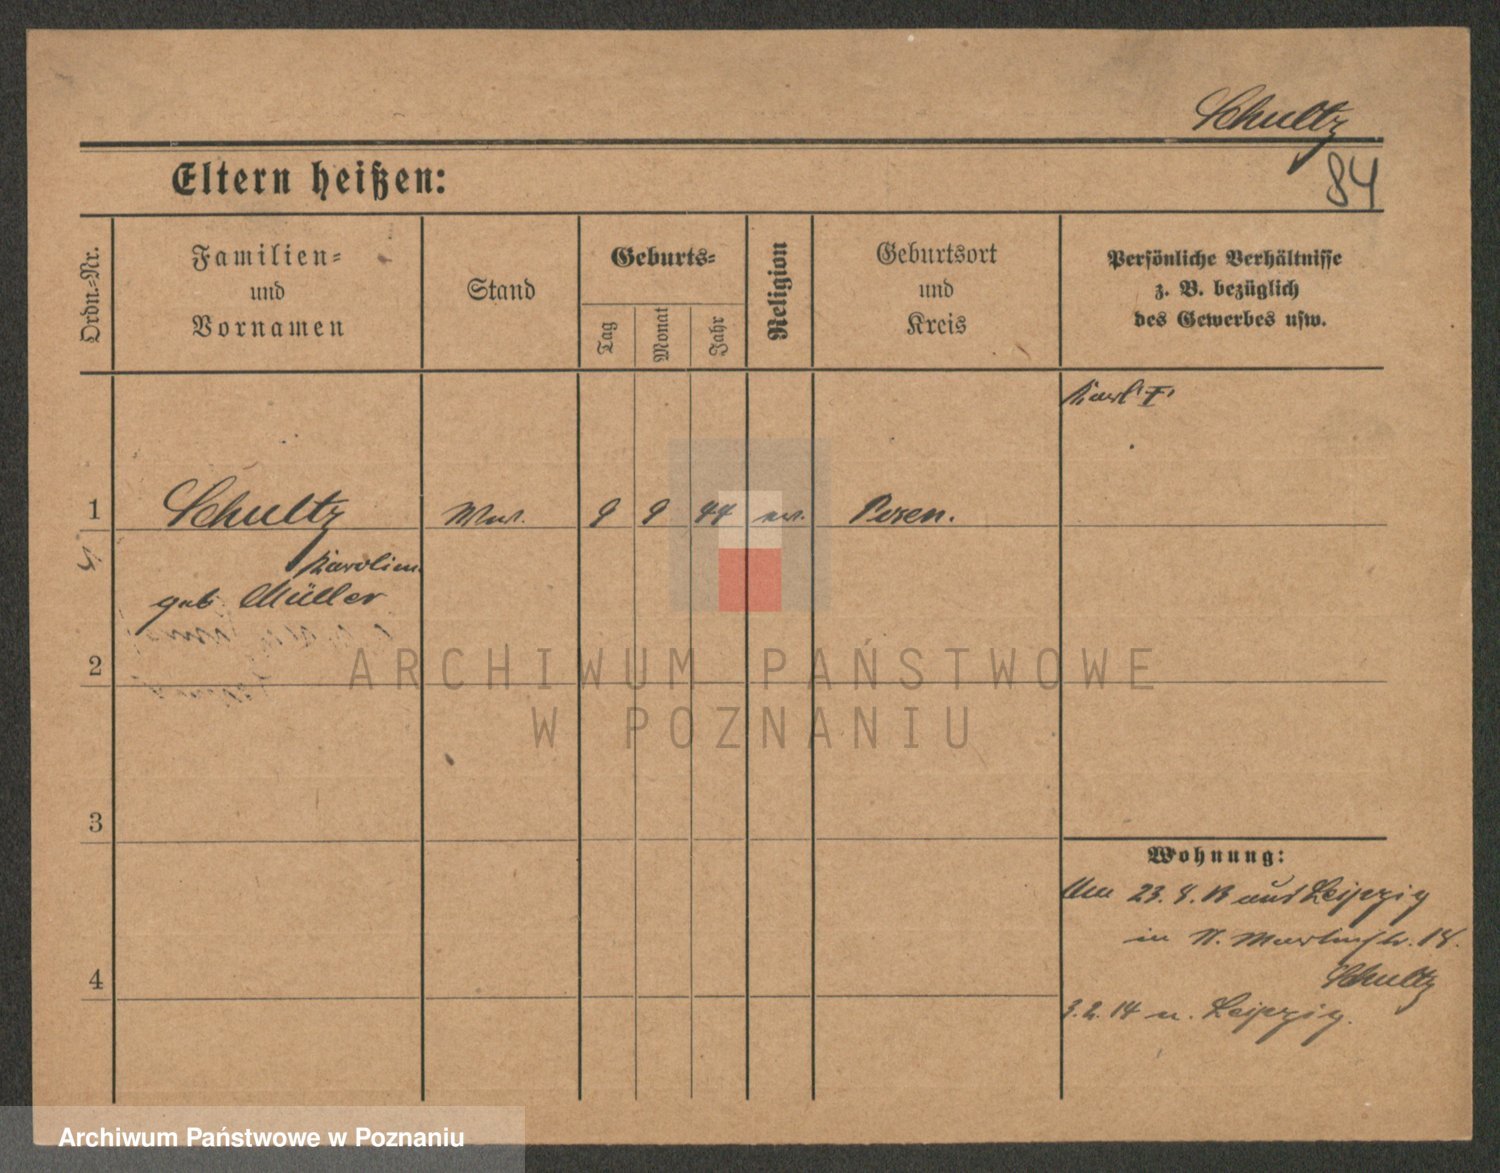 Schultz
84
Eltern heißen:
Ordn.=Nr.
Familien=
und
Vornamen
Stand
Geburts=
Tag
Monat
Jahr
Religion
Geburtsort
und
Kreis
Persönliche Verhältnisse
z. B. bezüglich
des Gewerbes usw.
Karl
1 Schultz Ww. 9 9 44 ev. Posen.
Karolin
geb. Müller
2
3
4
Wohnung:
Am 23. 8. 13 aus Leipzig
in St. Martinstr. 18.
Schultz
3. 2. 14 n. Leipzig.
ARCHIWUM PAŃSTWOWE
W POZNANIU
Archiwum Państwowe w Poznaniu